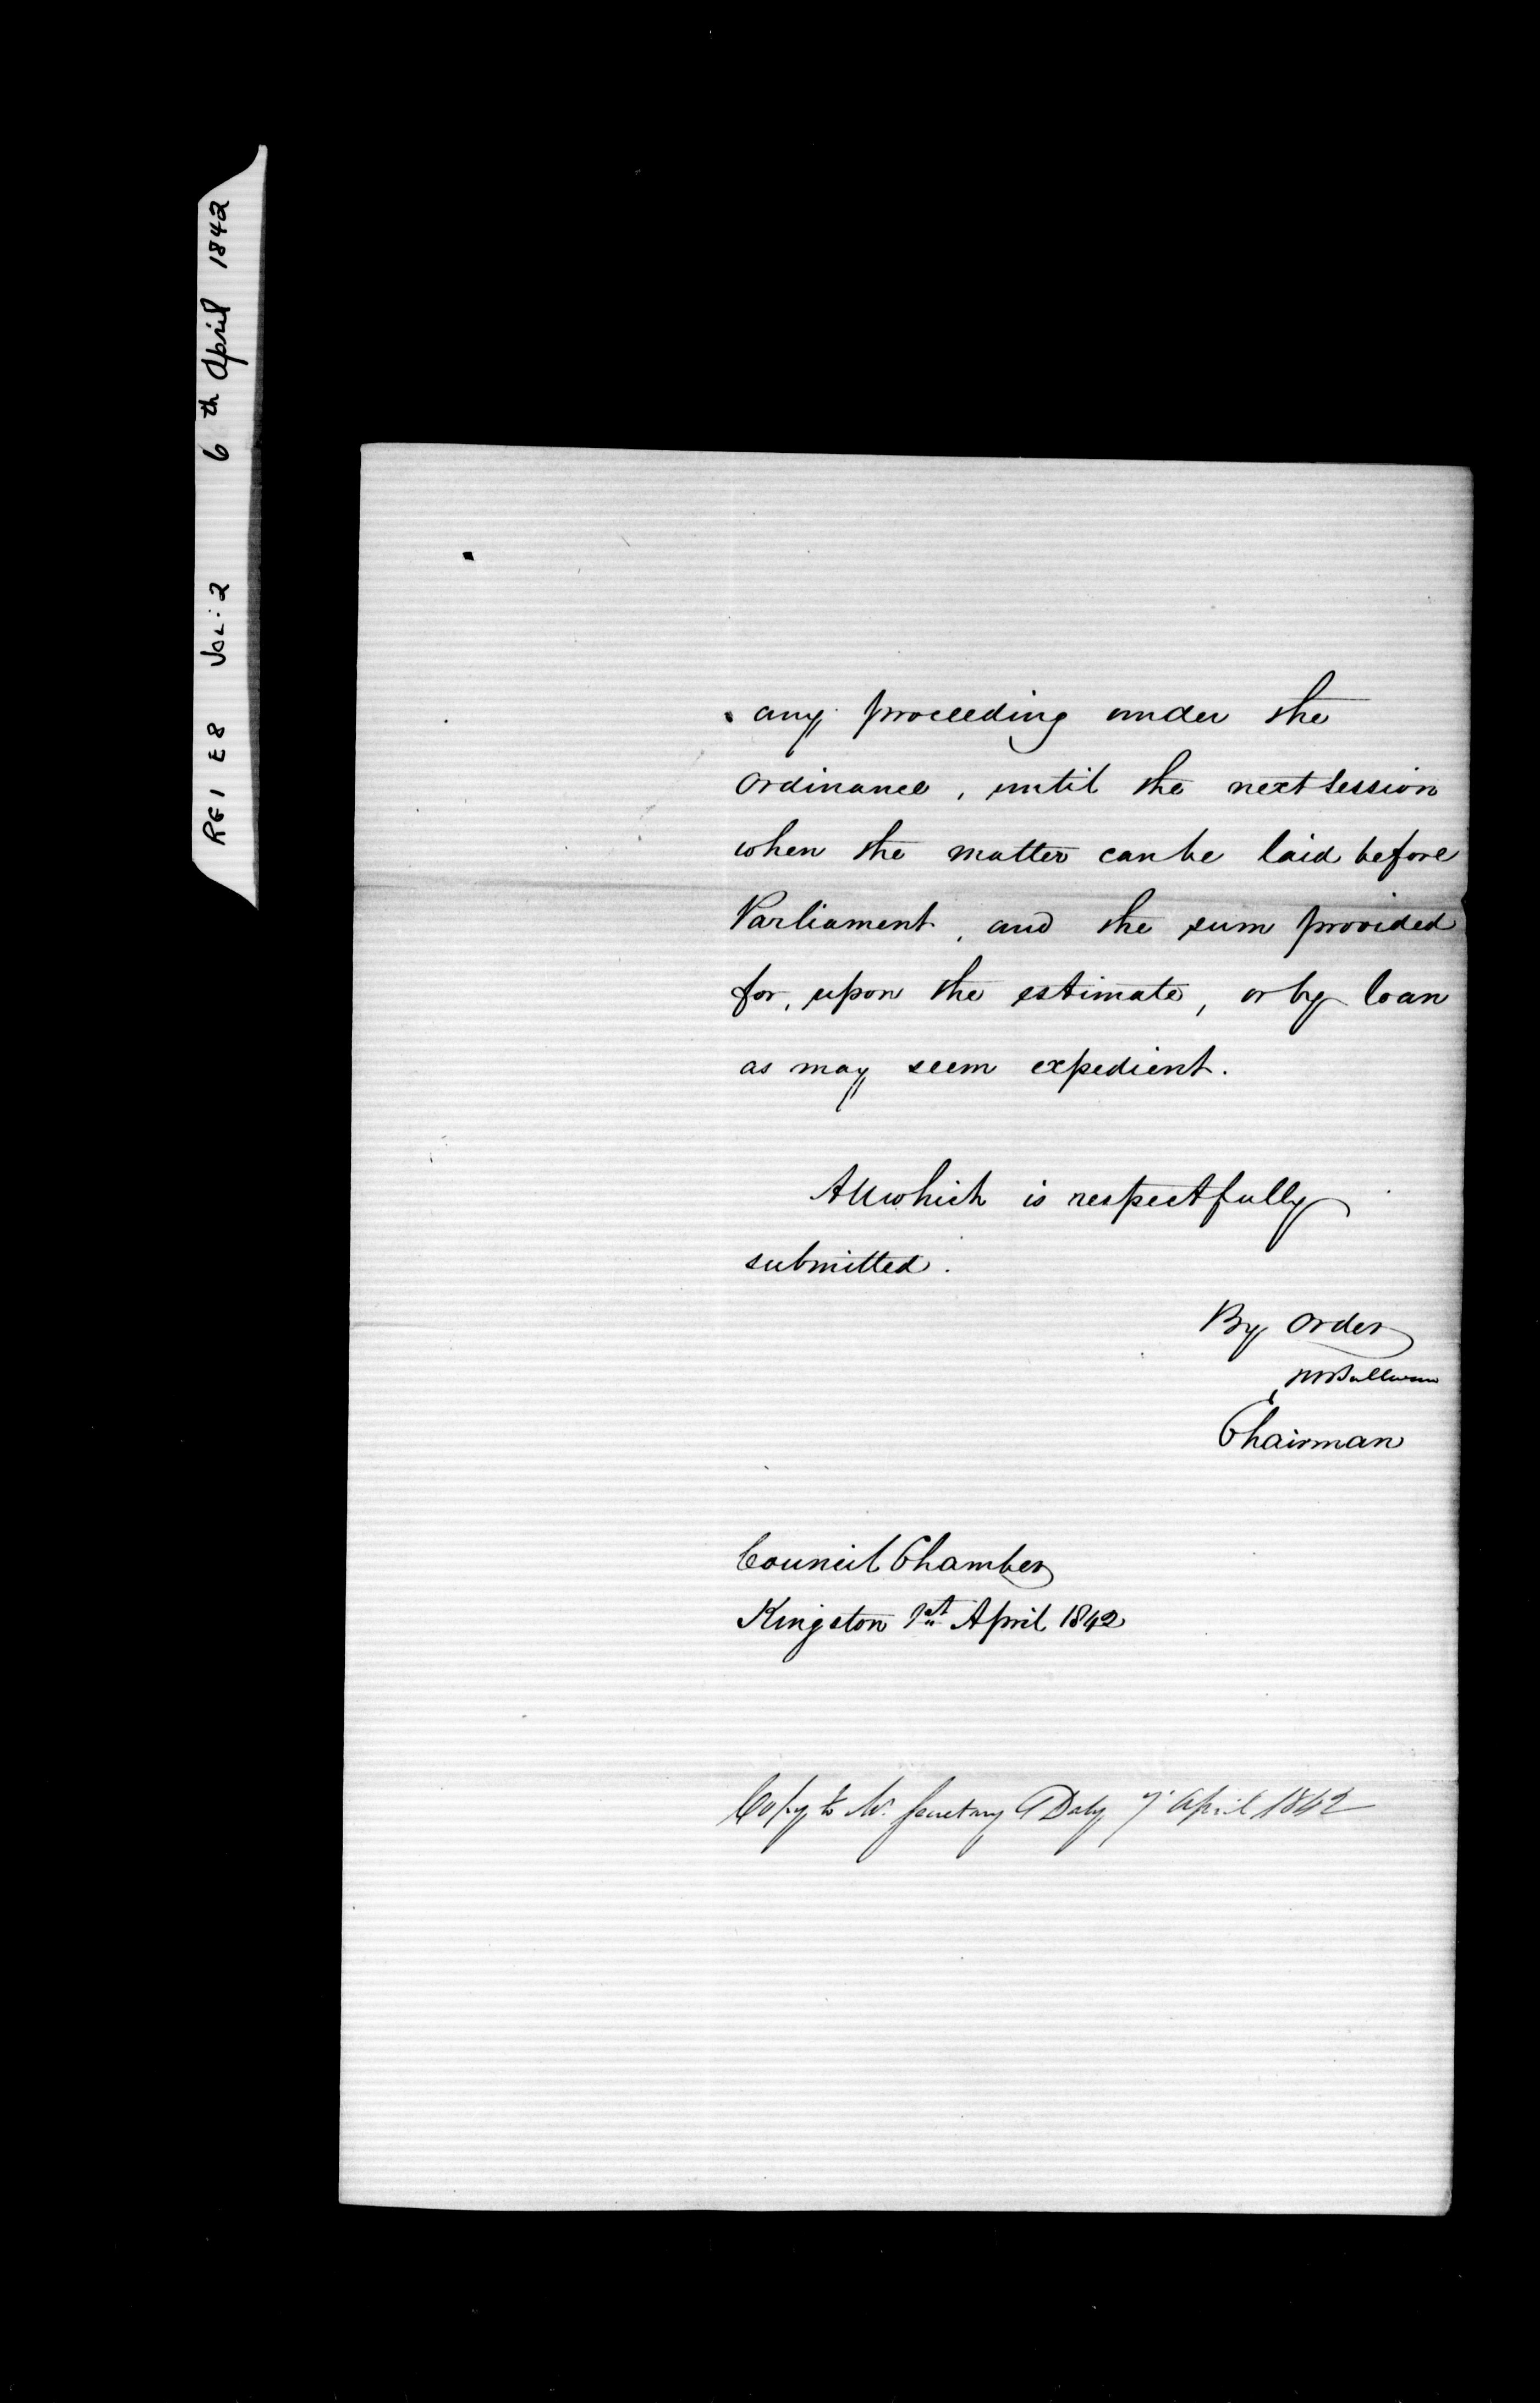 RG 1 E8 VOL: 2 6th April 1842
any proceeding under the
Ordinance, until the next session
when the matter can be laid before
Parliament, and the sum provided
for, upon the estimate, or by loan
as may seem expedient.
All which is respectfully
submitted.
By Order
Chairman
Council Chamber
Kingston 1st April 1842
Copy to Mr. Secretary Daly 7 April 1842